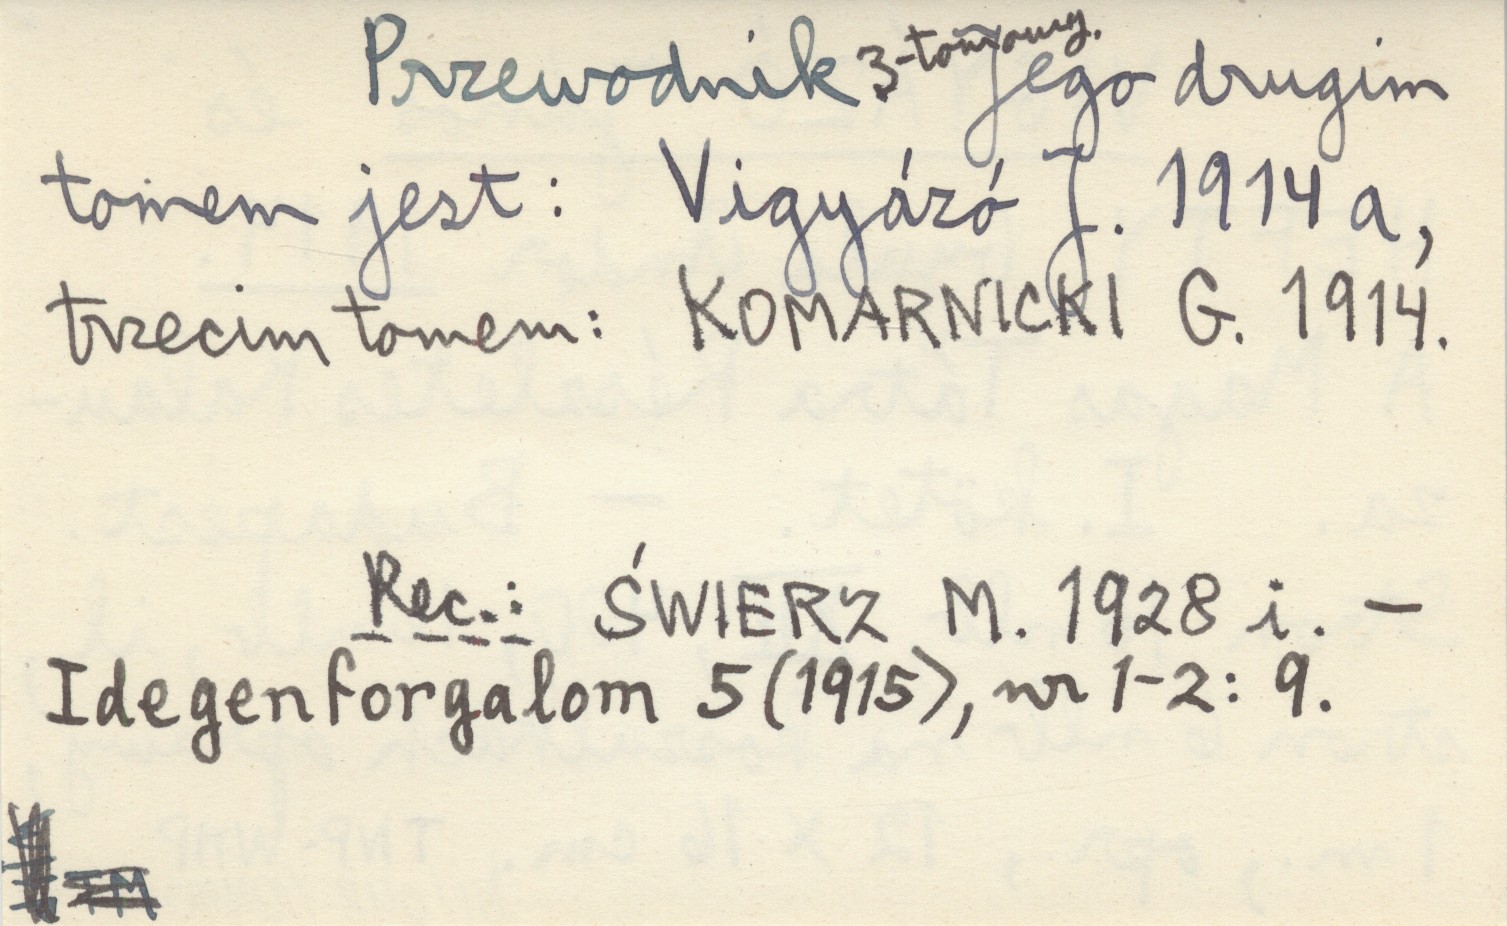 Przewodnik 3-tomowy. Jego drugim
tomem jest: Vigyázó J. 1914 a,
trzecim tomem: KOMARNICKI G. 1914.
Rec.: ŚWIERZ M. 1928 i. –
Idegenforgalom 5 (1915), nr 1-2: 9.